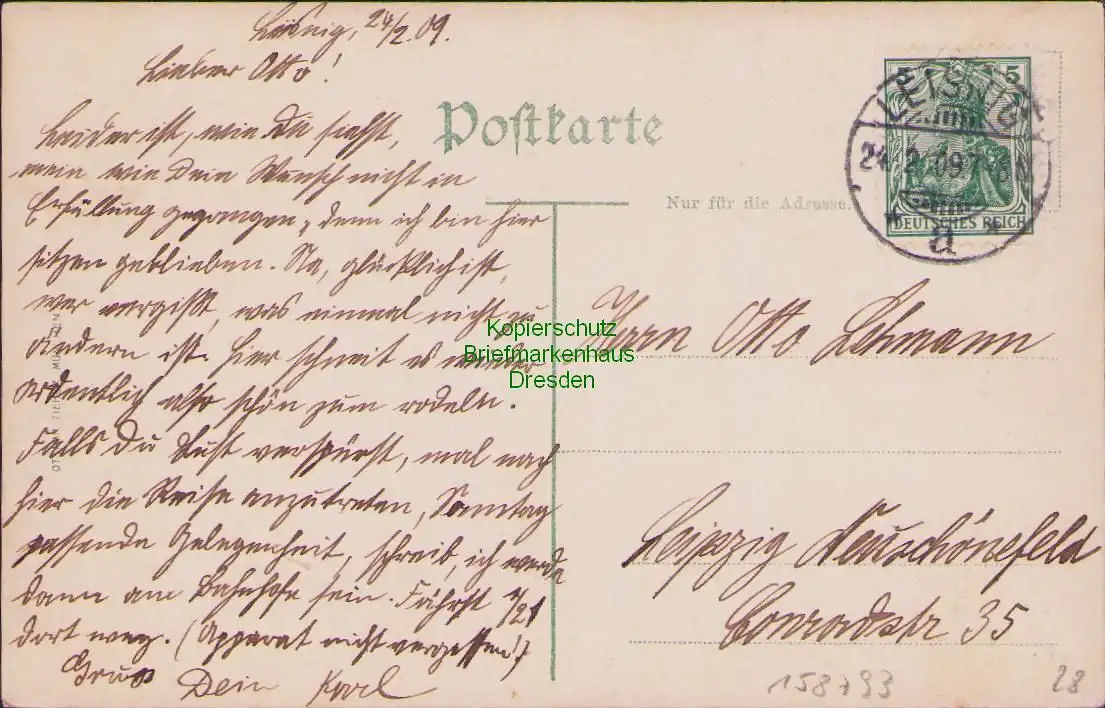 Leisnig, 24/2.09.
Lieber Otto!
Leider ist, wie Du siehst,
mein wie Dein Wunsch nicht in
Erfüllung gegangen, denn ich bin hier
sitzen geblieben. Na, glücklich ist,
wer vergißt, was einmal nicht zu
ändern ist. Hier schneit es wieder
ordentlich also schön zum rodeln.
Falls Du Lust verspürst, mal nach
hier die Reise anzutreten, Sonntag
passende Gelegenheit, schreib, ich werde
dann am Bahnhofe sein. Fährst
dort weg. (Apparat nicht vergessen!)
Gruß Dein Karl
Postkarte
Nur für die Adresse.
5
DEUTSCHES REICH
LEISNIG
24.2.09.7-8N
* a *
Herrn Otto Lehmann
Leipzig Neuschönefeld
Conradstr 35
Kopierschutz
Briefmarkenhaus
Dresden
158793
28